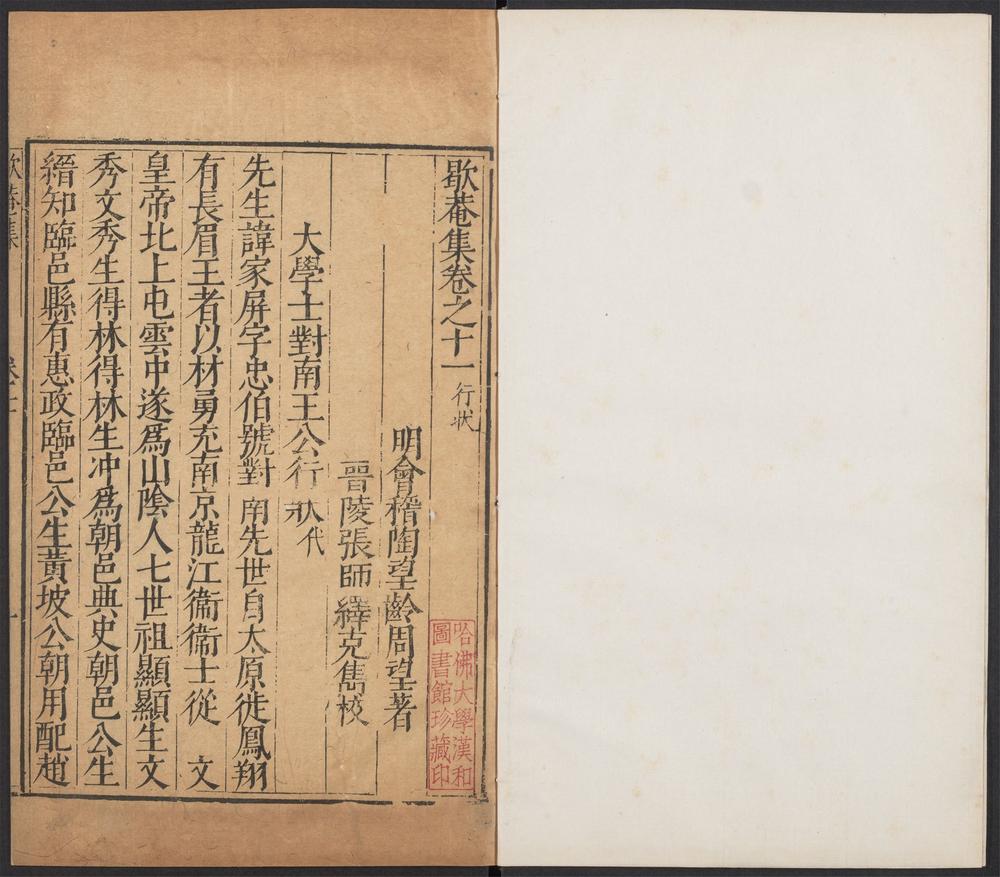 歇菴集卷之十一 行狀
明會稽陶望齡周望著
晉陵張師繹克雋校
大學士對南王公行狀代
先生諱家屏字忠伯號對南先世自太原徙鳳翔
有長眉王者以材勇充南京龍江衞衞士從 文
皇帝北上屯雲中遂爲山陰人七世祖顯顯生文
秀文秀生得林得林生冲爲朝邑典史朝邑公生
縉知臨邑縣有惠政臨邑公生黃坡公朝用配趙
歇菴集
卷十一
一
哈佛大學漢和
圖書館珍藏印